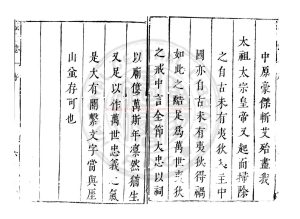 中原豪傑斬艾殆盡我
太祖太宗皇帝又起而掃除
之自古未有夷狄主中
國亦自古未有夷狄得禍
如此之酷足為萬世夷狄
之戒中言全節大忠以祠
以廟使萬斯年凛然猶生
又足以作萬世忠義之氣
是大有關繫文字當與厓
山並存可也